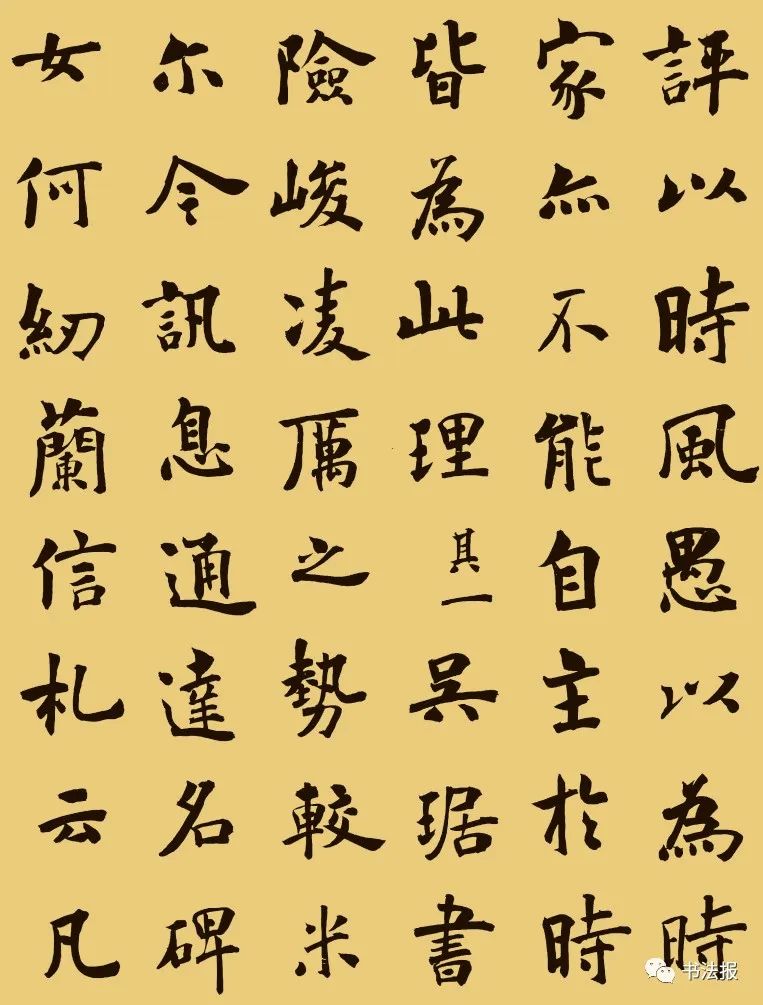 評以時風愚以為時
家亦不能自主於時
皆為此理其一吳琚書
險峻凌厲之勢較米
尔令訊息通達名碑
女何紉蘭信札云凡
书法报